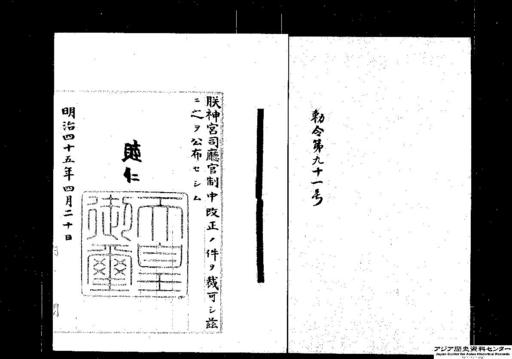 勅令第九十一号
朕神宮司廳官制中改正ノ件ヲ裁可シ茲
ニ之ヲ公布セシム
睦仁
天皇御璽
明治四十五年四月二十日
アジア歴史資料センター
Japan Center for Asian Historical Records